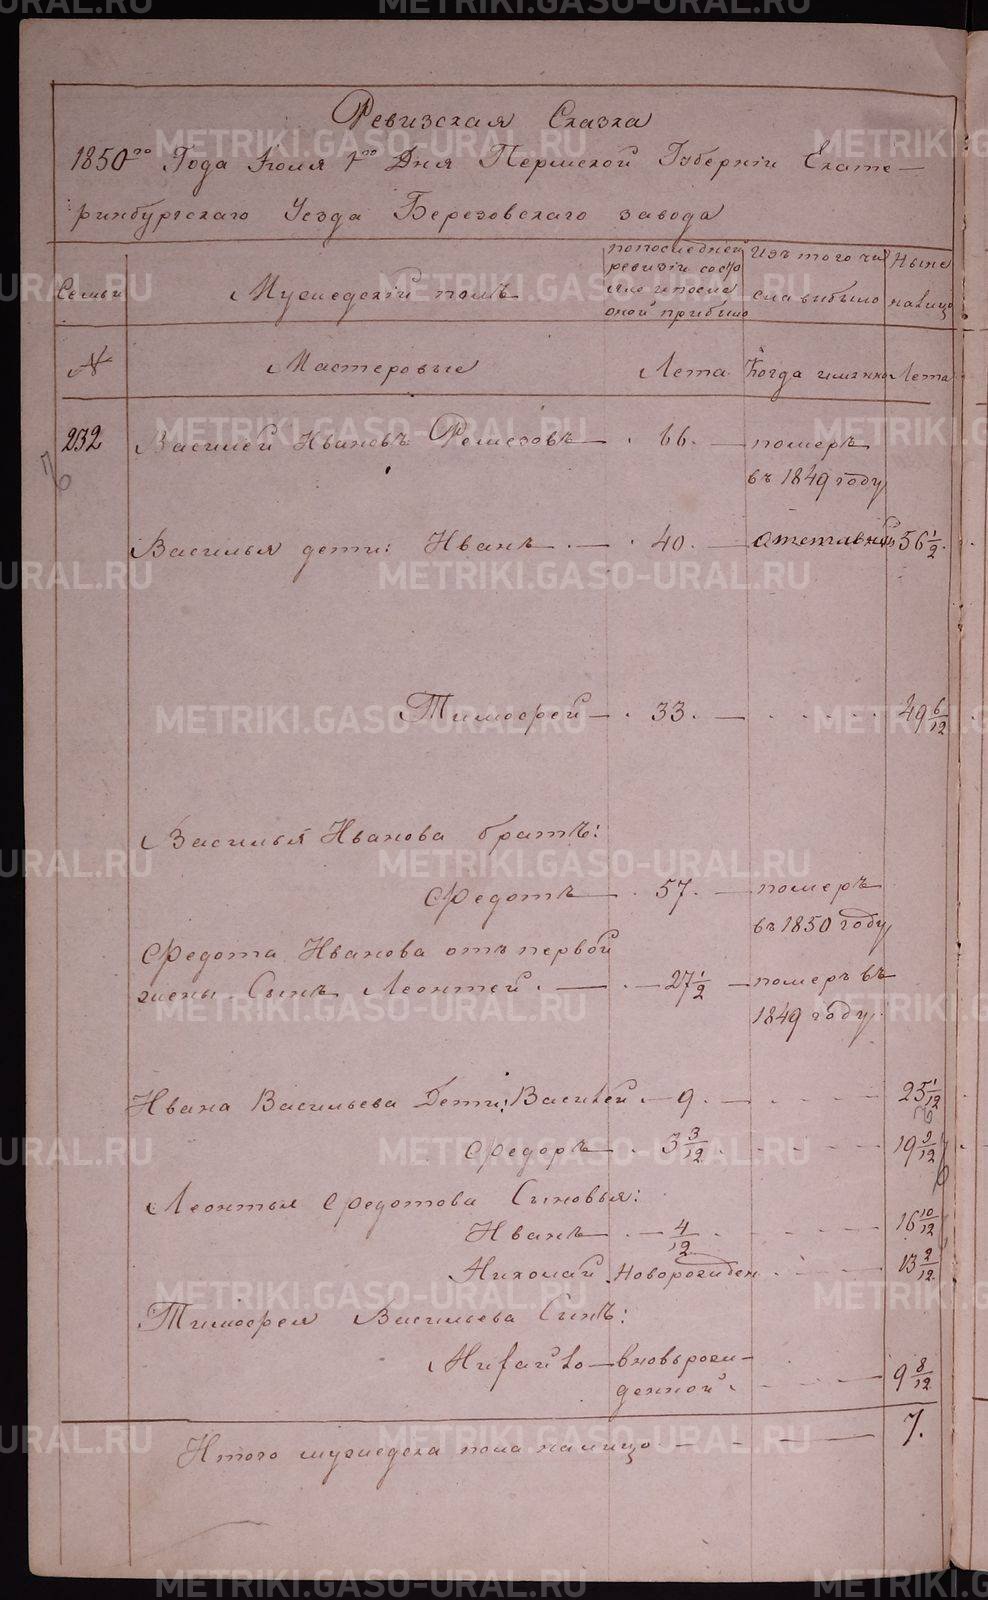 Ревизская Сказка
1850го Года Июля 1го Дня Пермской Губернiи Екате-
ринбургскаго Уезда Березовскаго завода
Семьи
Мужеедскiй полъ
попоследней
ревизiи состо
яло ипосле
оной прибыло
Изъ того чи
сла выбыло
Ныне
налицо
№
Мастеровые
Лета
Когда имянно
Лета
232 Василей Ивановъ Ремезовъ 66. померъ
въ 1849 году
Василья дети: Иванъ 40. 56 1/2
Тимофей 33. 49 6/12
Василья Иванова братъ:
Федотъ 57. померъ
въ 1850 году
Федота Иванова отъ первой
жены Сынъ Леонтей 27 1/2 померъ въ
1849 году
Ивана Васильева Дети: Василей 9. 25 1/12
Федоръ 3 3/12 19 9/12
Леонтья Федотова Сыновья:
Иванъ 4/12 16 10/12
Николай Новорожден 13 2/12
Тимофея Васильева Сынъ:
Михайло вновьрож-
денной 9 8/12
Итого мужеска пола налицо 7.
METRIKI.GASO-URAL.RU